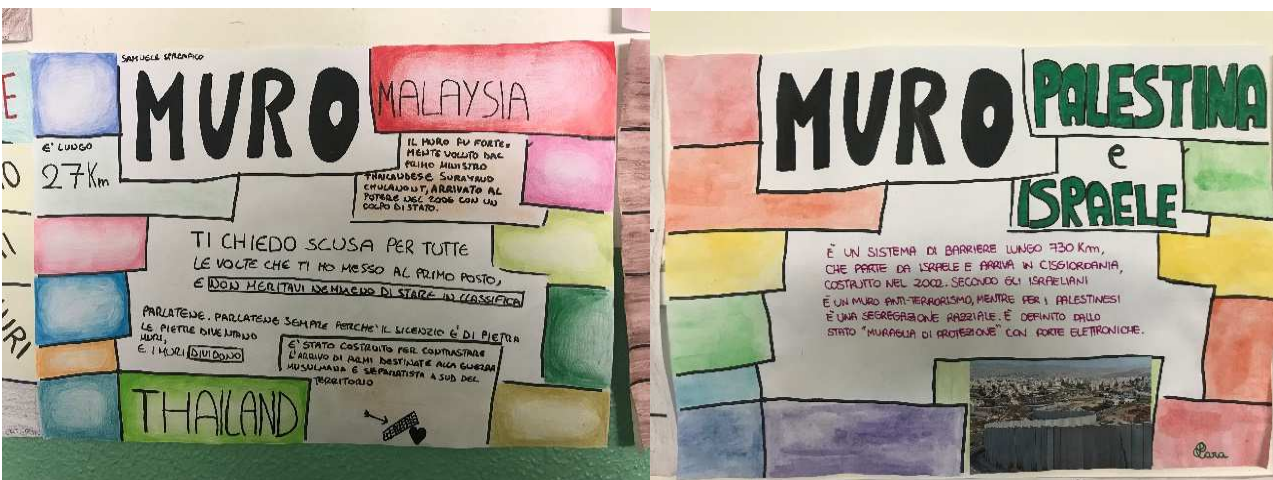 SAMUELE SPREAFICO
MURO
MALAYSIA
E' LUNGO
27 Km
IL MURO FU FORTE-
MENTE VOLUTO DAL
PRIMO MINISTRO
THAILANDESE SURAYAUD
CHULANONT, ARRIVATO AL
POTERE NEL 2006 CON UN
COLPO DI STATO.
TI CHIEDO SCUSA PER TUTTE
LE VOLTE CHE TI HO MESSO AL PRIMO POSTO,
E NON MERITAVI NEMMENO DI STARE IN CLASSIFICA
PARLATENE. PARLATENE SEMPRE PERCHE' IL SILENZIO E' DI PIETRA
LE PIETRE DIVENTANO
MURI,
E I MURI DIVIDONO
E' STATO COSTRUITO PER CONTRASTARE
L'ARRIVO DI ARMI DESTINATE ALLA GUERRA
MUSULMANA E SEPARATISTA A SUD DEL
TERRITORIO
THAILAND
MURO
PALESTINA
e
ISRAELE
È UN SISTEMA DI BARRIERE LUNGO 730 Km,
CHE PARTE DA ISRAELE E ARRIVA IN CISGIORDANIA,
COSTRUITO NEL 2002. SECONDO GLI ISRAELIANI
È UN MURO ANTI-TERRORISMO, MENTRE PER I PALESTINESI
È UNA SEGREGAZIONE RAZZIALE. È DEFINITO DALLO
STATO "MURAGLIA DI PROTEZIONE" CON PORTE ELETTRONICHE.